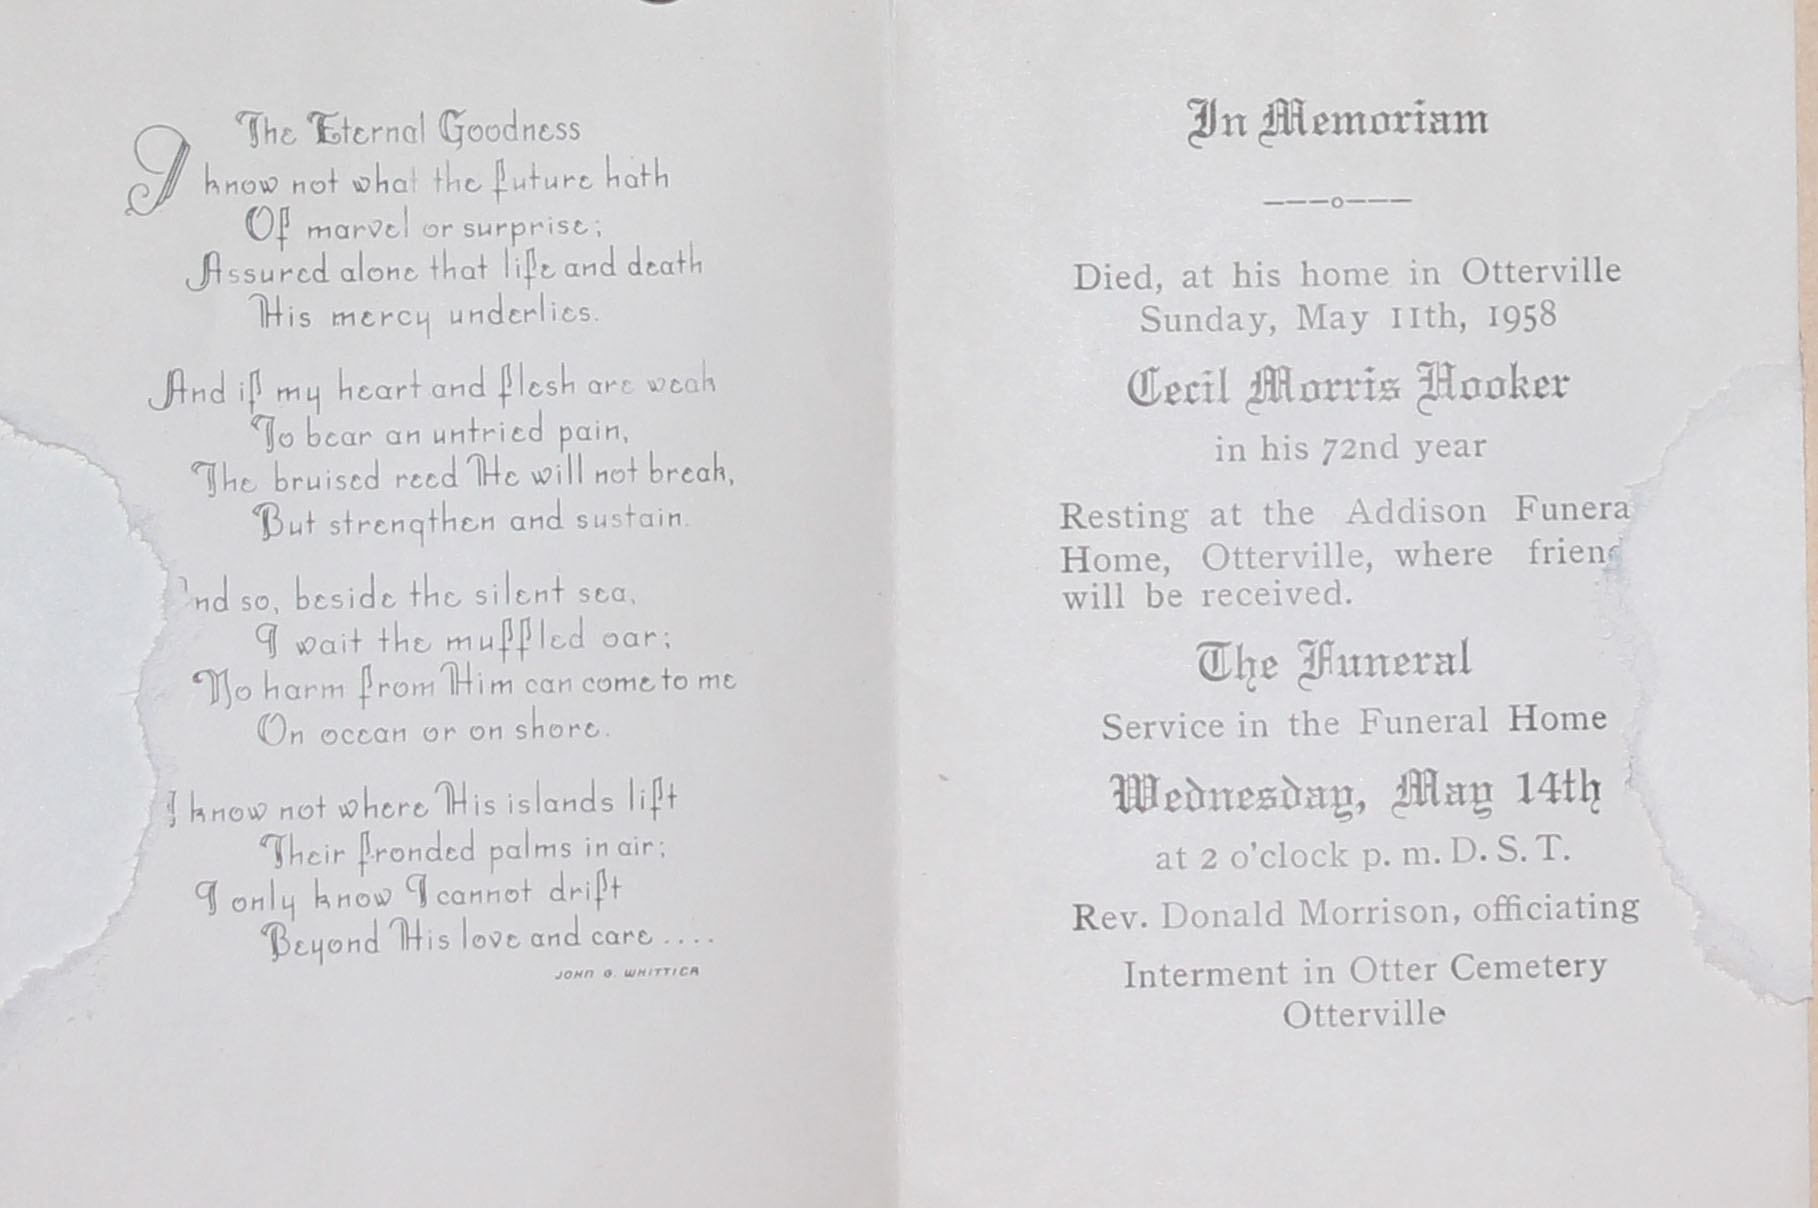 The Eternal Goodness
I know not what the future hath
Of marvel or surprise;
Assured alone that life and death
His mercy underlies.
And if my heart and flesh are weak
To bear an untried pain,
The bruised reed He will not break,
But strengthen and sustain.
nd so, beside the silent sea,
I wait the muffled oar;
No harm from Him can come to me
On ocean or on shore.
I know not where His islands lift
Their fronded palms in air;
I only know I cannot drift
Beyond His love and care ....
JOHN G. WHITTIER
In Memoriam
———o———
Died, at his home in Otterville
Sunday, May 11th, 1958
Cecil Morris Hooker
in his 72nd year
Resting at the Addison Funera
Home, Otterville, where frien
will be received.
The Funeral
Service in the Funeral Home
Wednesday, May 14th
at 2 o'clock p. m. D. S. T.
Rev. Donald Morrison, officiating
Interment in Otter Cemetery
Otterville